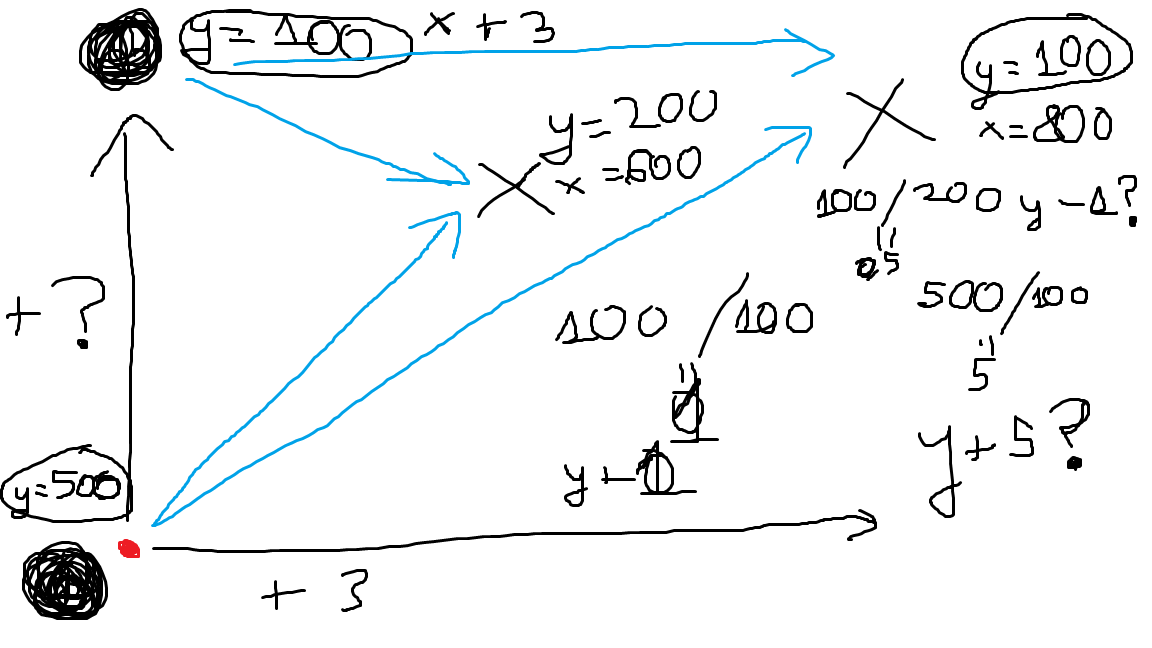 y = 100
x + 3
y = 100
x = 800
y = 200
x = 600
100 / 200 y - 1?
=
0.5
+ ?
100 / 100
=
500 / 100
=
5
y + 5 ?
y = 500
+ 3